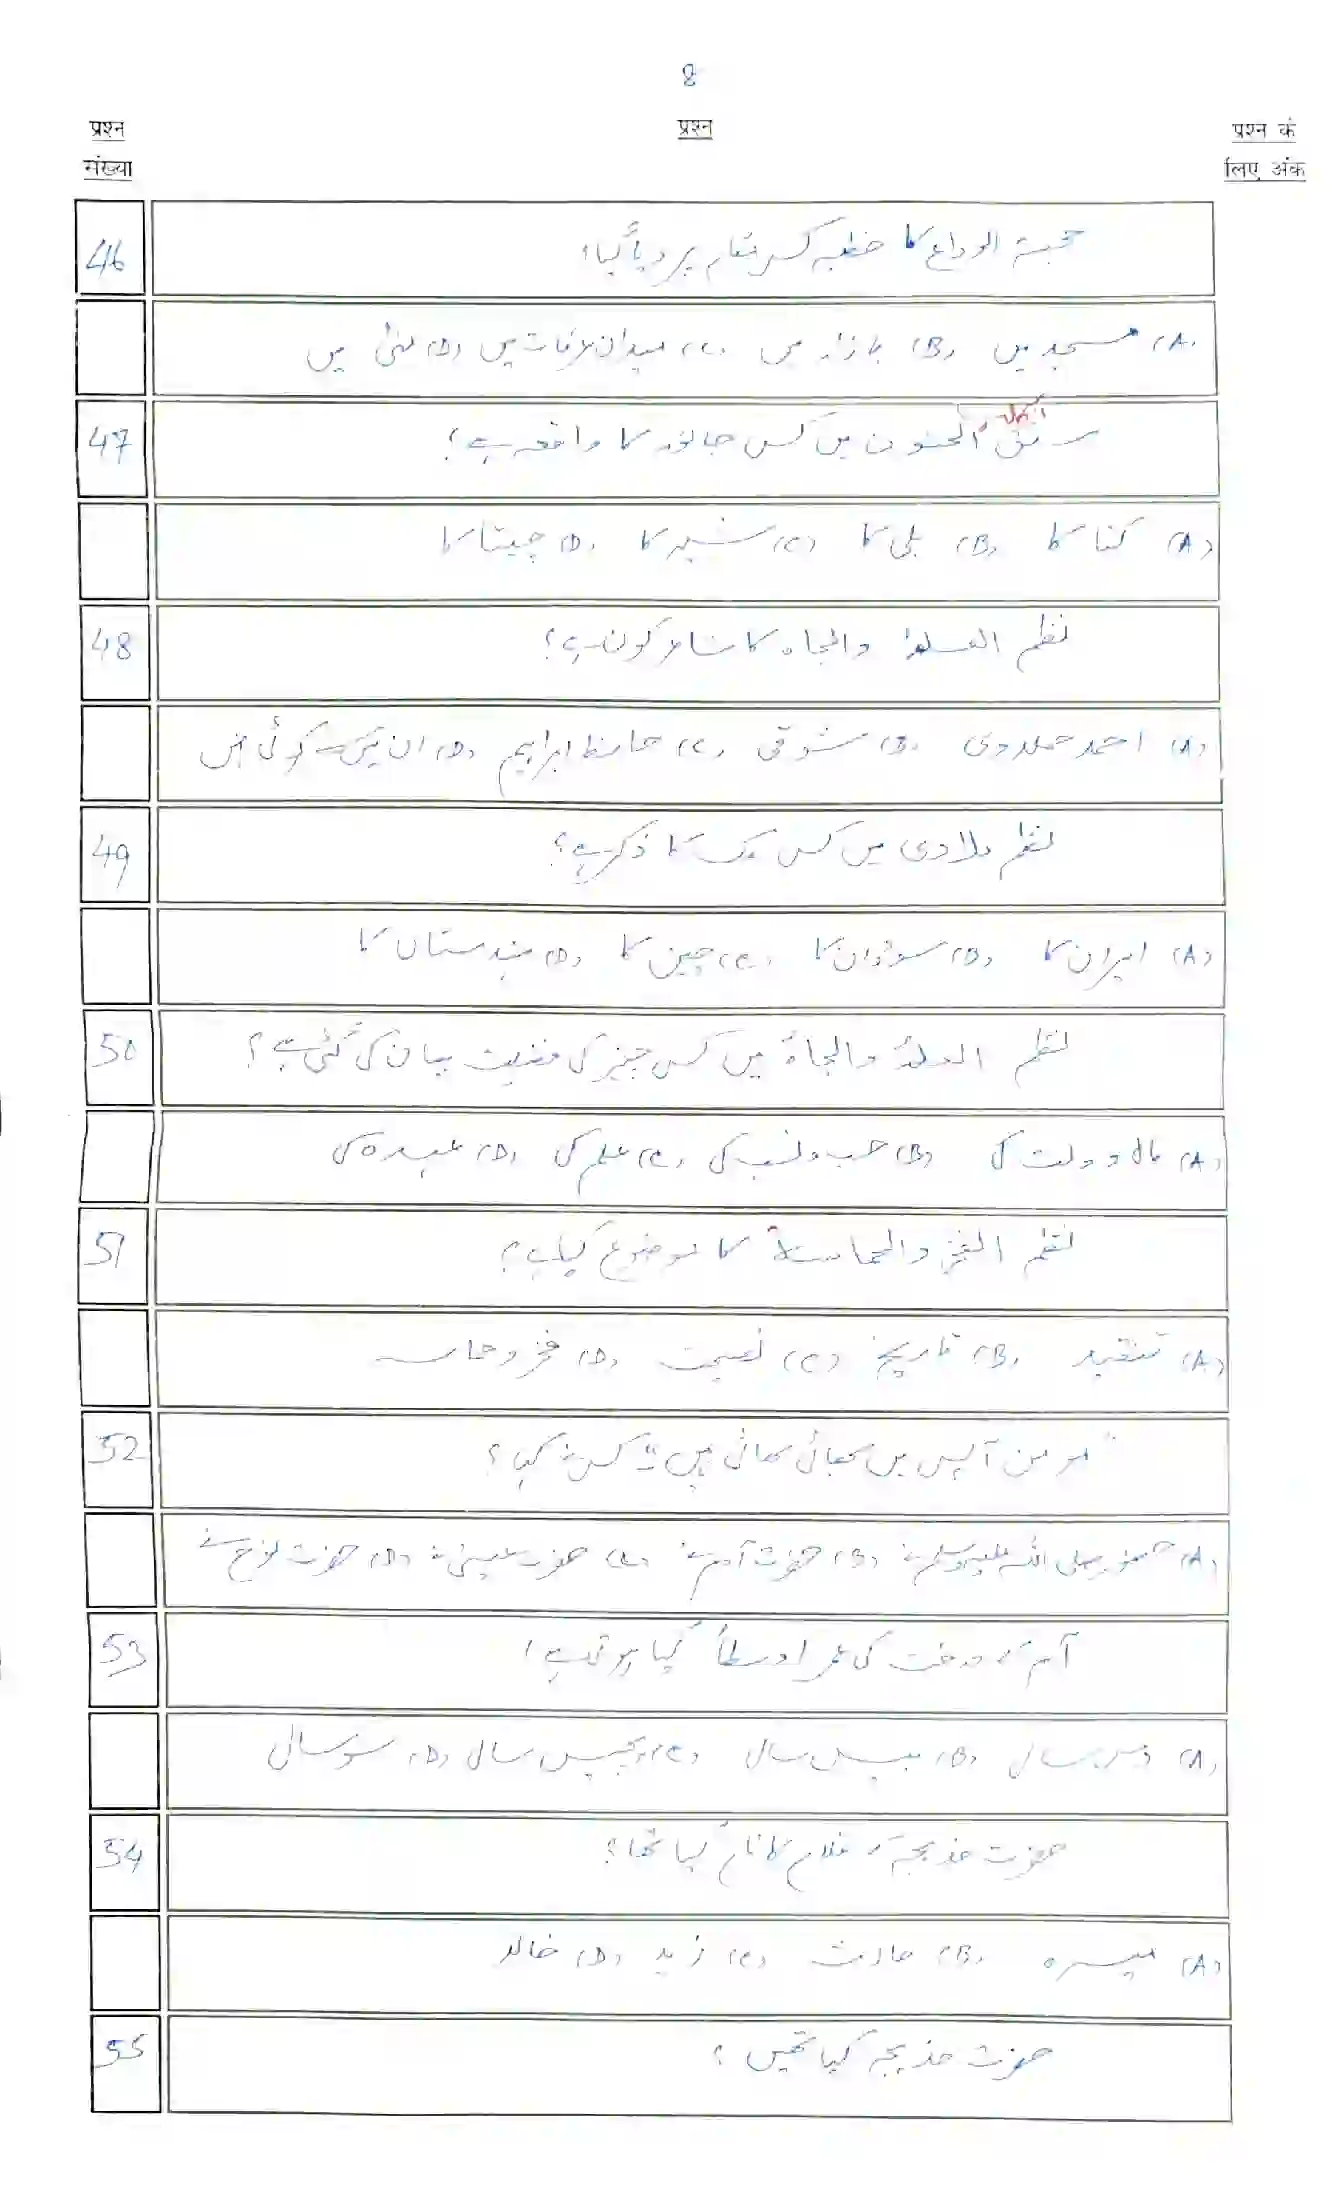 8
प्रश्न संख्या
प्रश्न
प्रश्न के लिए अंक
46
حجۃ الوداع کا خطبہ کس مقام پر دیا گیا؟
(A) مسجد میں (B) بازار میں (C) میدان عرفات میں (D) منیٰ میں
47
میں کس جانور کا واقعہ ہے؟
(A) کتا کا (B) بلی کا (C) شیر کا (D) چیتا کا
48
نظم والجاہ کا شاعر کون ہے؟
(A) احمد (B) شوقی (C) حافظ ابراہیم (D) ان میں سے کوئی نہیں
49
نظم بلادی میں کس ملک کا ذکر ہے؟
(A) ایران کا (B) سوڈان کا (C) چین کا (D) ہندستان کا
50
نظم والجاہ میں کس چیز کی فضیلت بیان کی گئی ہے؟
(A) مال و دولت کی (B) حسب و نسب کی (C) علم کی (D) عہدہ کی
51
نظم الفخر والحماسۃ کا موضوع کیا ہے؟
(A) تنقید (B) تاریخ (C) نصیحت (D) فخر و حماسہ
52
"مومن آپس میں بھائی بھائی ہیں" کس نے کہا؟
(A) حضور صلی اللہ علیہ وسلم نے (B) حضرت آدم نے (C) حضرت عیسیٰ نے (D) حضرت نوح نے
53
آم کے درخت کی عمر اوسطاً کیا ہوتی ہے؟
(A) دس سال (B) بیس سال (C) پچیس سال (D) سو سال
54
حضرت خدیجہ کے غلام کا نام کیا تھا؟
(A) میسرہ (B) حارث (C) زید (D) خالد
55
حضرت خدیجہ کیا تھیں؟